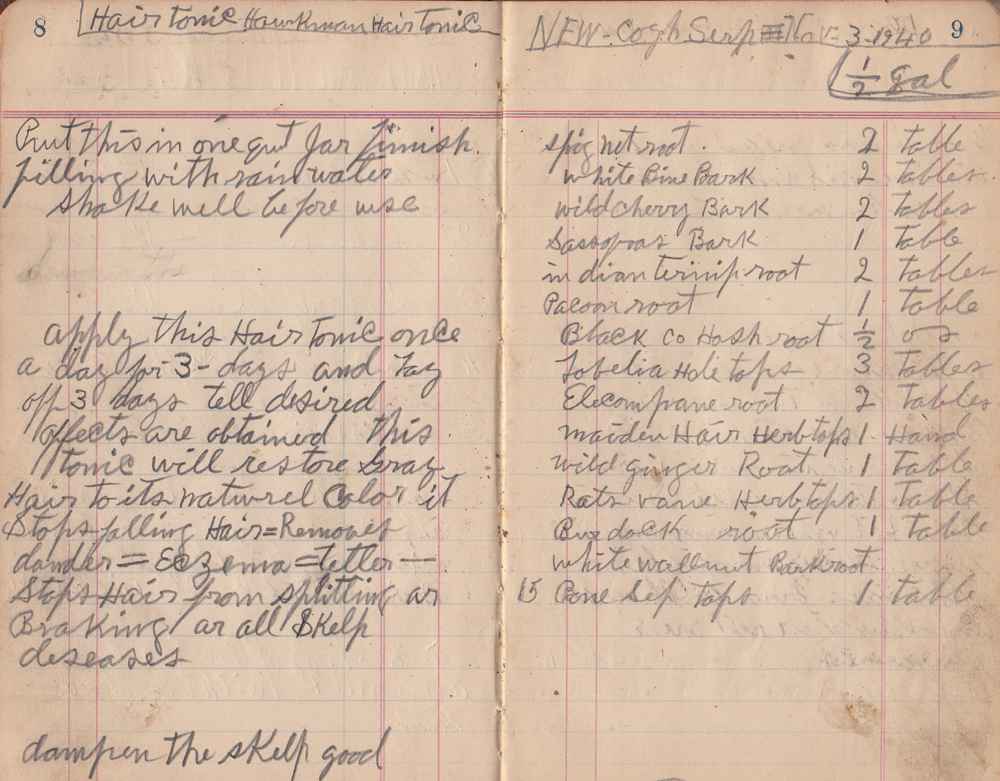 8
Hair Tonic Hawkman Hair Tonic
Put this in one qut Jar finish
filling with rain water
Shake well before use
apply this Hair Tonic once
a day for 3 - days and Lay
off 3 days tell desired
effects are obtained this
tonic will restore Gray
Hair to its naturel Color it
Stops falling Hair = Removes
dander = Eczema = tetter —
Stops Hair from splitting ar
Braking ar all Skelp
deseases
dampen the sKelp good
9
NEW - Cogh Serp = Nov - 3 - 1940
1/2 gal
spignet root . 2 table
white Pine Bark 2 tables
wild cherry Bark 2 tables
Sassofras Bark 1 table
indian ternip root 2 tables
Pacoon root 1 table
Black Co Hosh root 1/2 oz
Lobelia Hole tops 3 Tables
Elecompane root 2 tables
maiden Hair Herb tops 1 Hand
wild ginger Root 1 table
Rats vane Herb tops 1 table
Burdock root 1 table
white wallnut Bark root
15 Bone Sef tops 1 table